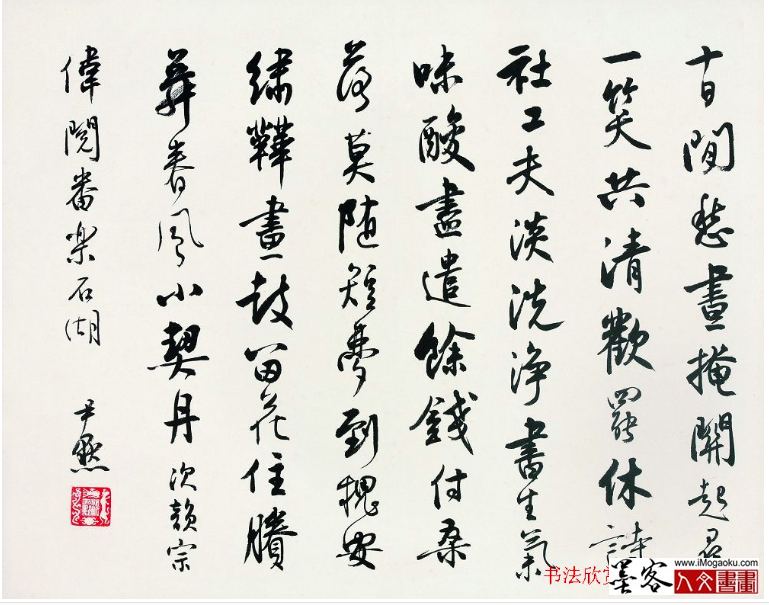 十日閒愁晝掩關起尋
一笑共清歡罷休詩
社工夫淡洗淨書生氣
味酸盡遣餘錢付桑
落莫随短夢到槐安
繡韉畫鼓留花住賸
舞春風小契丹次韻宗
偉閱番樂石湖 尹默
书法欣
墨客
www.iMogaoku.com
人文書畫